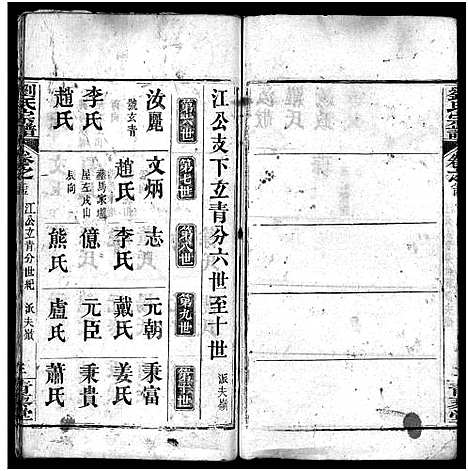 江公支下立青分六世至十世 派夫嶺
第六世
第七世
第八世
第九世
第十世
汝麗
號玄青
文炳
志
元朝
秉富
李氏
趙氏
李氏
戴氏
姜氏
億
元臣
秉貴
趙氏
熊氏
盧氏
蕭氏
劉氏宗譜
卷之
江公立青分世紀 派夫嶺